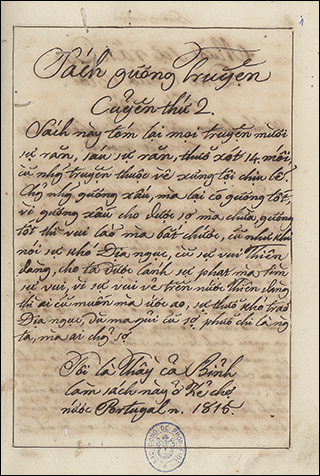 Sách gương Truyện
Cuyển thứ 2.
Sách này tóm lại mọi truyện mười
sự răn, sáu sự răn, thuở xót 14 mối,
cũ nhý truyện thuộc về xưng tội chịu lễ.
Chg nhý gương xấu, mà lại có gương tốt,
vì gương xấu cho được sợ mà chừa, gương
tốt thì vui lào mà bắt chước, cũ như khi
nói sự khó Địa ngục, cũ sự vui Thiên
đàng, cho ta được lánh sự phạt mà tìm
sự vui, vì sự vui vẻ trên nước Thiên đàng
thì ai cũ muốn mà ước ao, sự khó
Địa ngục, dù mà quỉ cũ sợ, phuơ chi là ng
ta, mà ai chg sợ.
Tôi là Thầy cả Bỉnh
làm sách này ở Kẻ chợ
nước Portugal n. 1815.